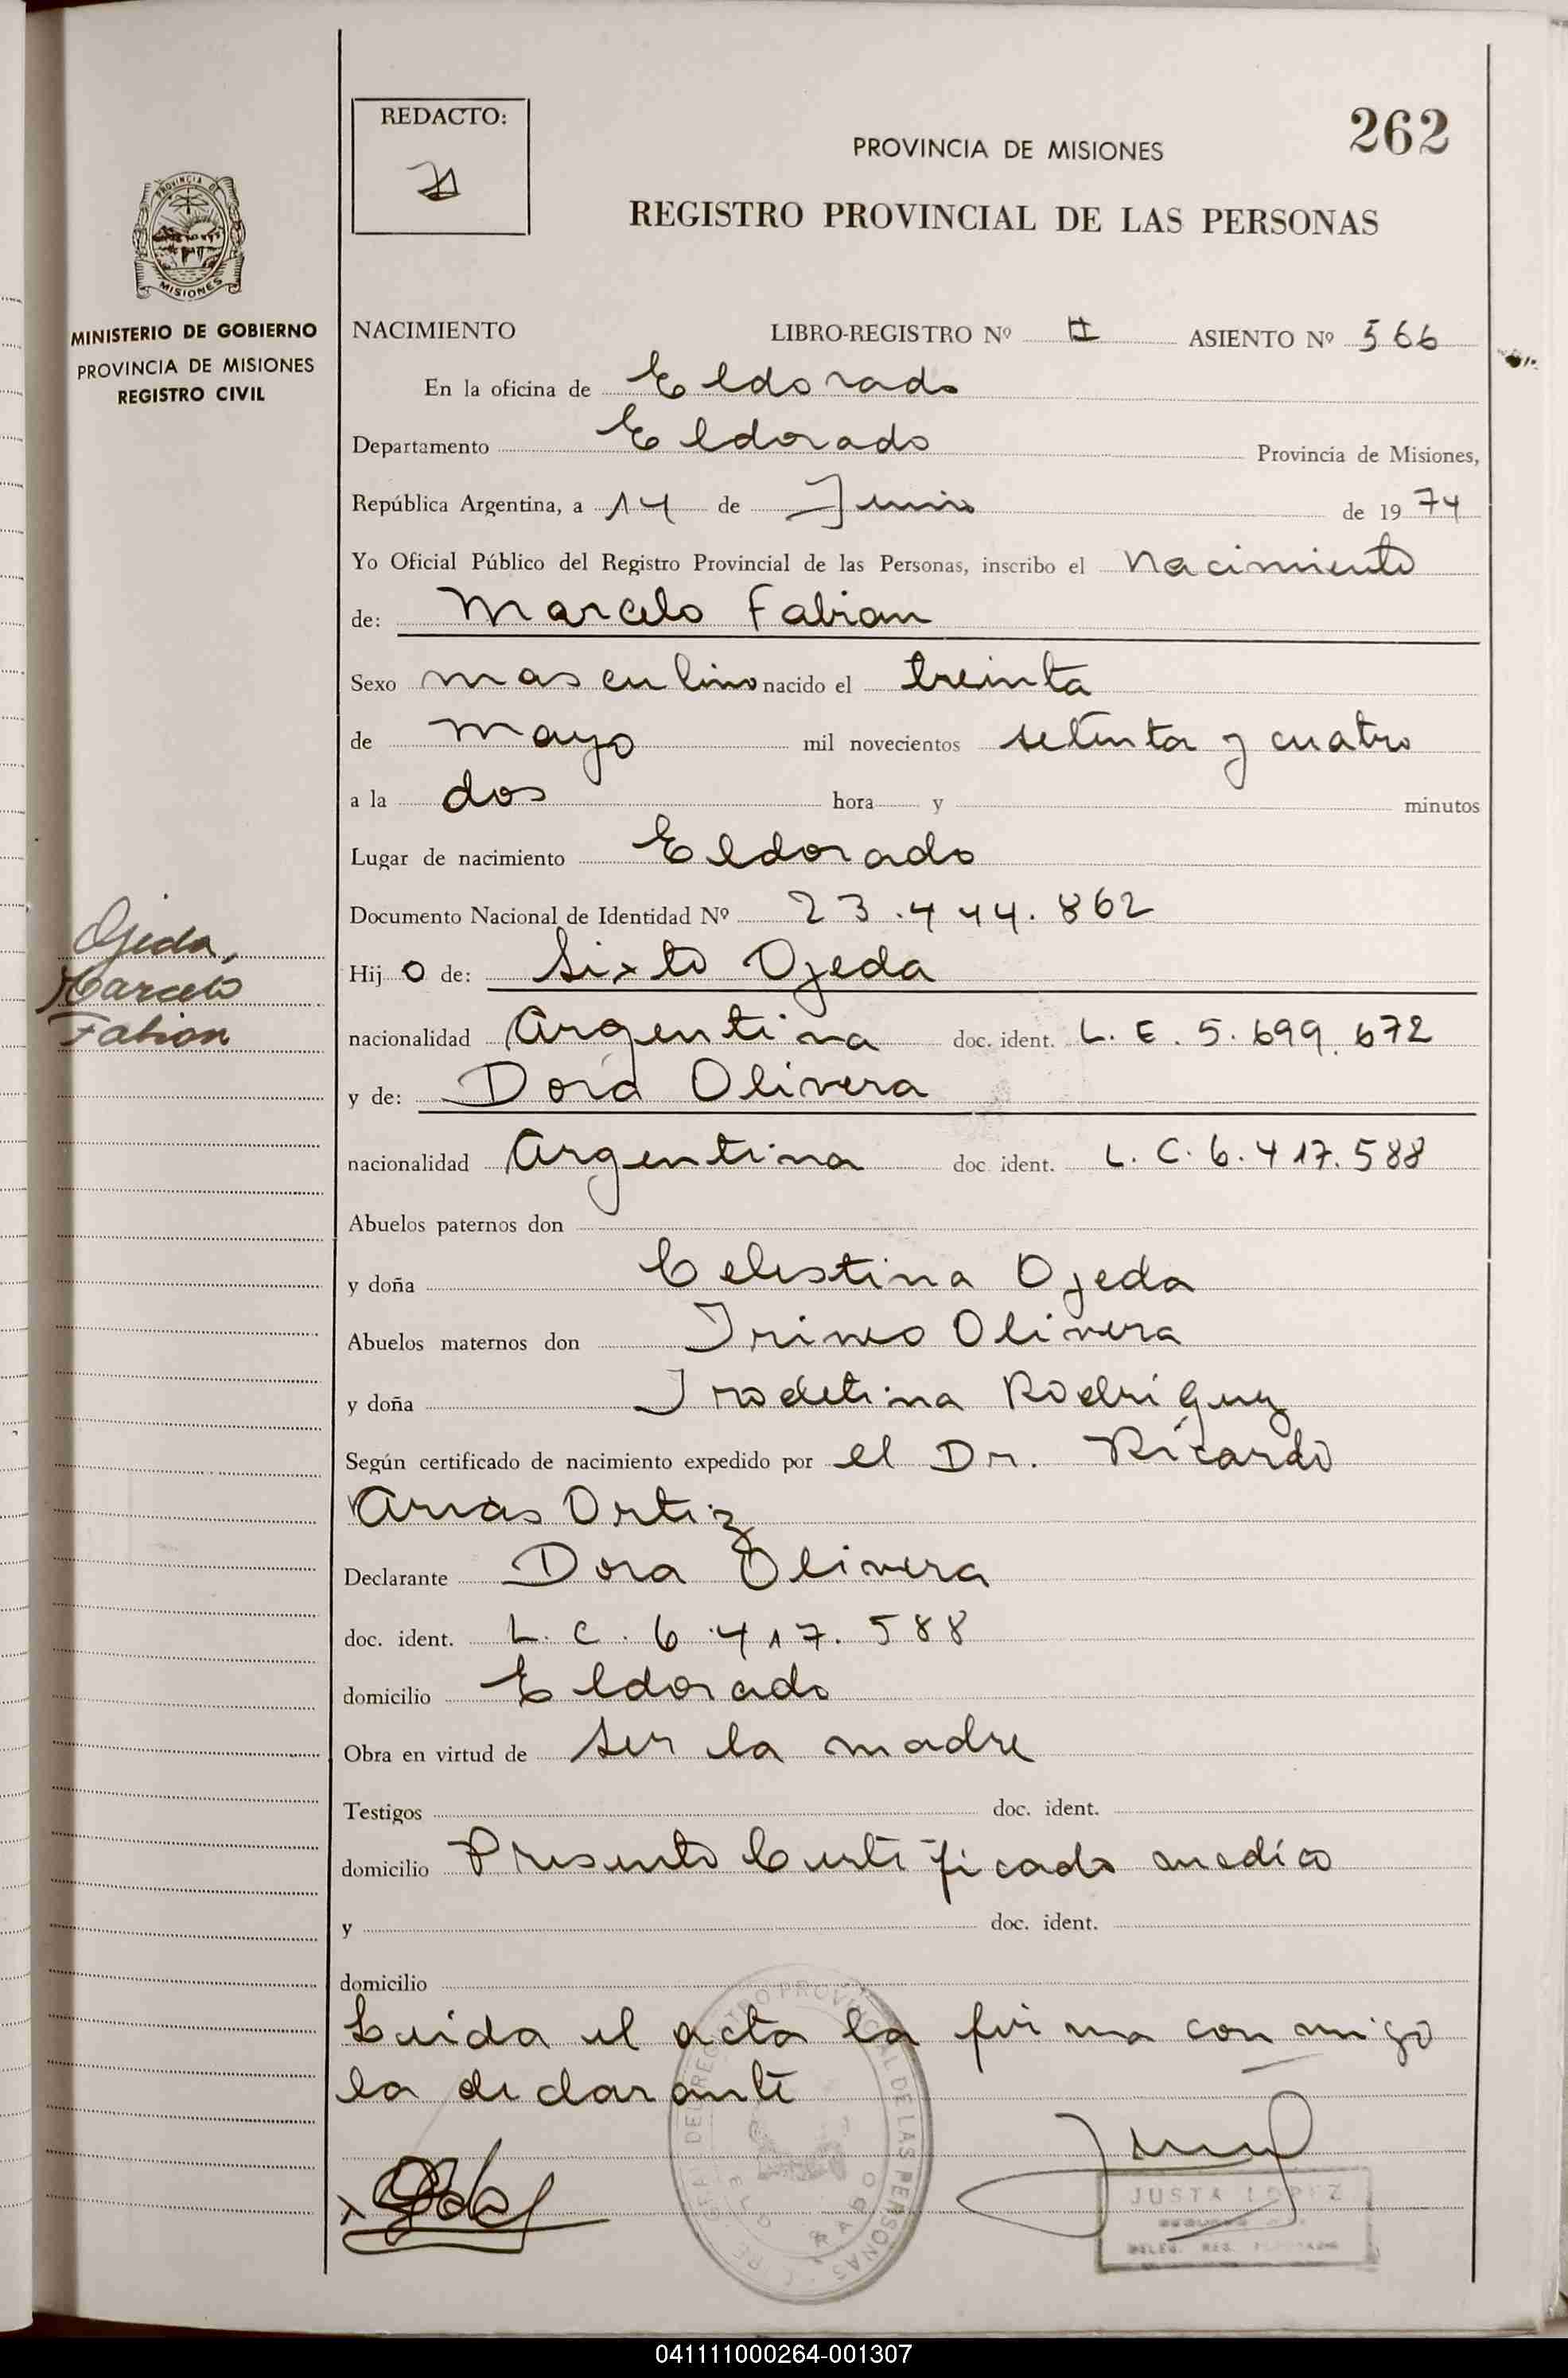 REDACTO:
262
PROVINCIA DE MISIONES
REGISTRO PROVINCIAL DE LAS PERSONAS
PROVINCIA DE
MISIONES
MINISTERIO DE GOBIERNO
PROVINCIA DE MISIONES
REGISTRO CIVIL
NACIMIENTO LIBRO-REGISTRO Nº II ASIENTO Nº 566
En la oficina de Eldorado
Departamento Eldorado Provincia de Misiones,
República Argentina, a 14 de Junio de 1974
Yo Oficial Público del Registro Provincial de las Personas, inscribo el Nacimiento
de: Marcelo Fabian
Sexo masculino nacido el treinta
de mayo mil novecientos setenta y cuatro
a la dos hora y minutos
Lugar de nacimiento Eldorado
Documento Nacional de Identidad Nº 23.444.862
Ojeda,
Marcelo
Fabian
Hij o de: Sixto Ojeda
nacionalidad Argentina doc. ident. L. E. 5.699.672
y de: Dora Olivera
nacionalidad Argentina doc ident. L. C. 6.417.588
Abuelos paternos don
y doña Celestina Ojeda
Abuelos maternos don Irineo Olivera
y doña Rodriguez
Según certificado de nacimiento expedido por el Dr. Ricardo
Arias Ortiz
Declarante Dora Olivera
doc. ident. L. C. 6.417.588
domicilio Eldorado
Obra en virtud de ser la madre
Testigos doc. ident.
domicilio Presento Certificado medico
y doc. ident.
domicilio
Leida el acta la firma con migo
la declarante
JUSTA LOPEZ
041111000264-001307